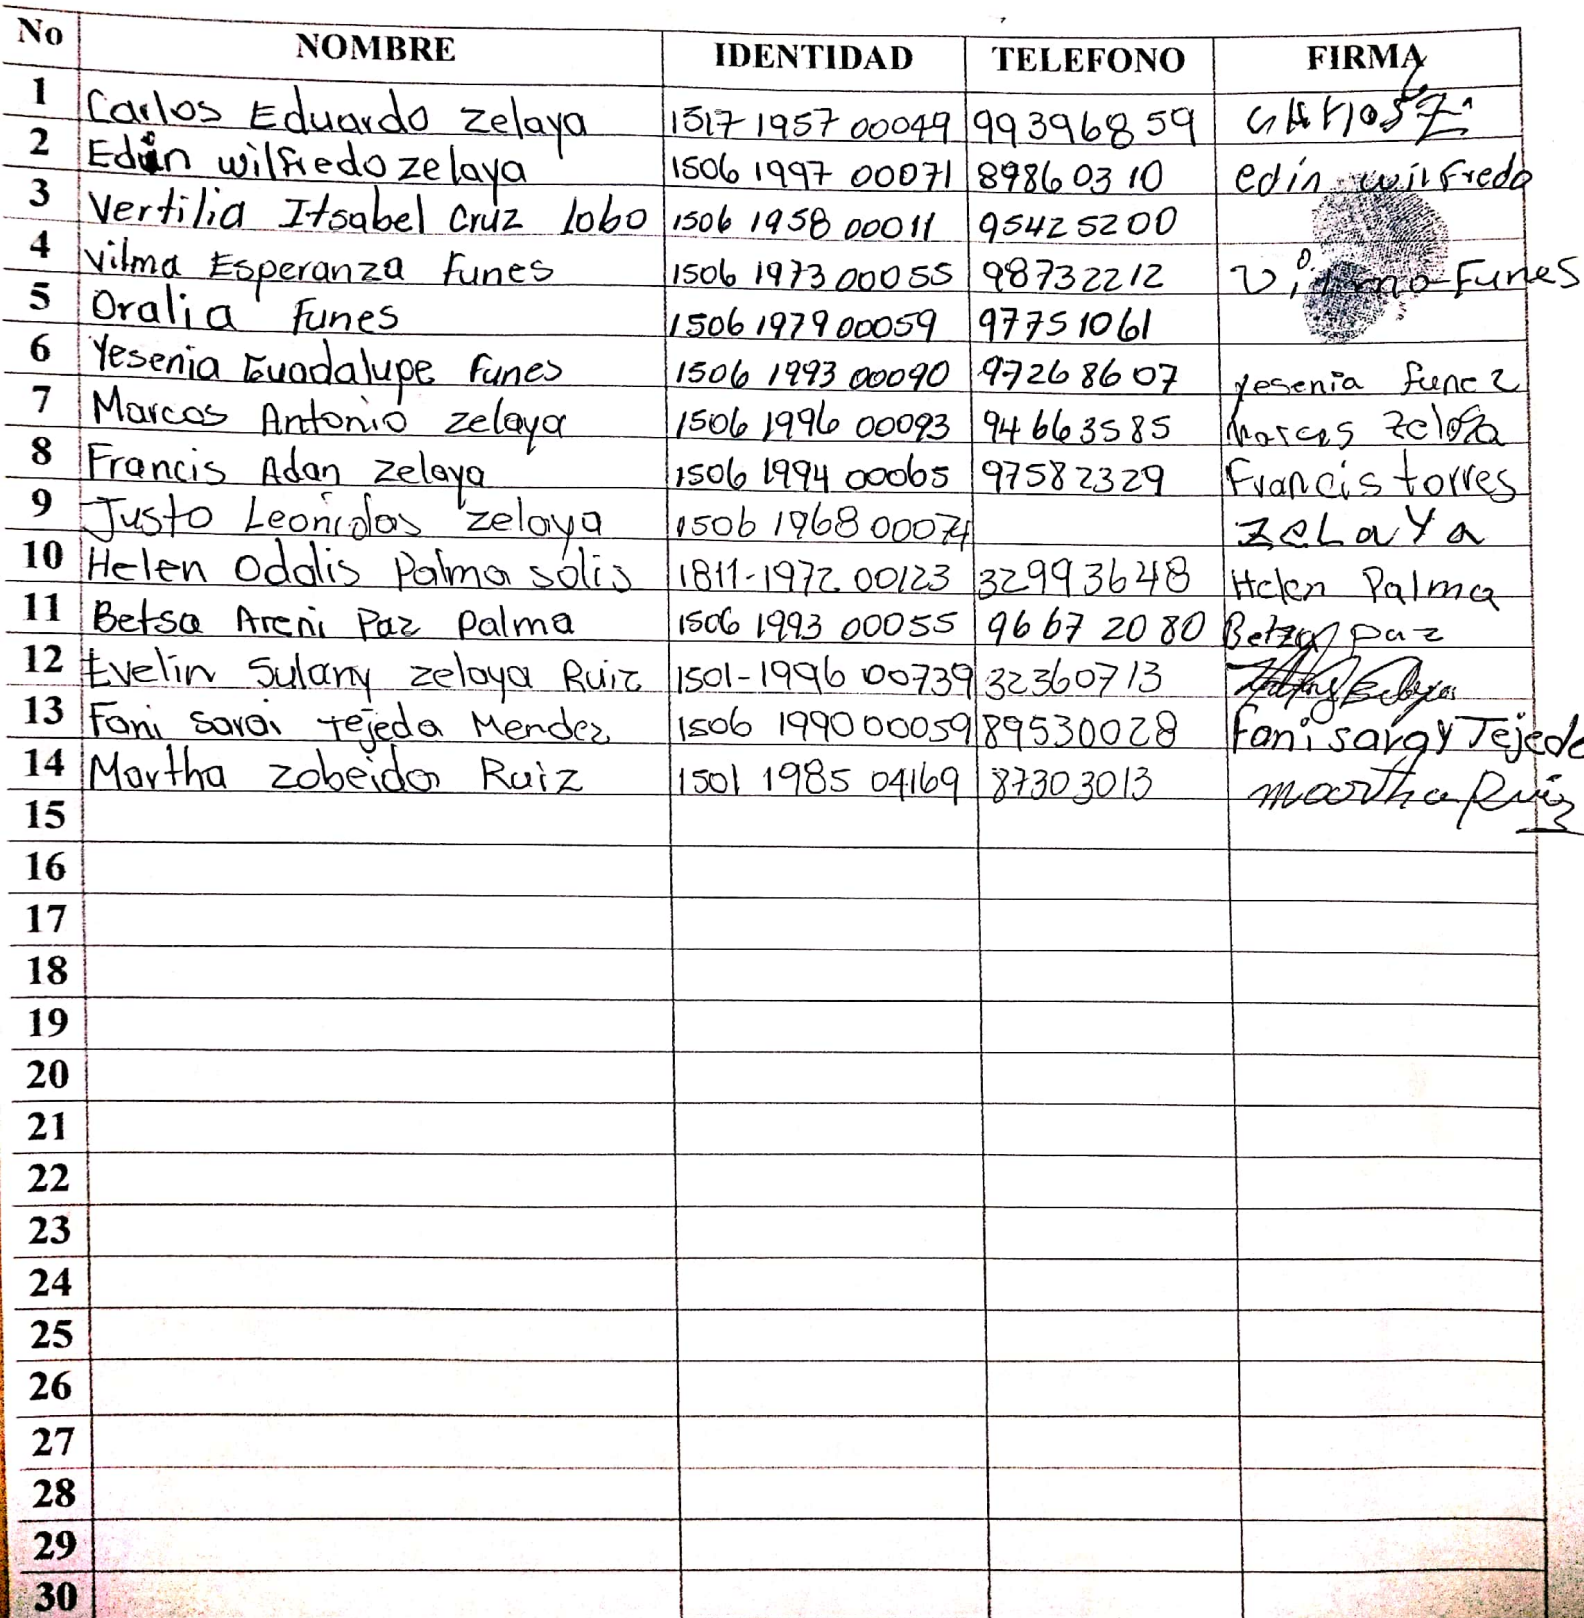 No NOMBRE IDENTIDAD TELEFONO FIRMA
1 Carlos Eduardo Zelaya 1517 1957 00049 99396859 CArlos Z
2 Edin wilfredo zelaya 1506 1997 00071 89860310 edin wilfredo
3 Vertilia Itsabel Cruz lobo 1506 1958 00011 95425200
4 Vilma Esperanza Funes 1506 1973 00055 98732212 Vilma Funes
5 Oralia Funes 1506 1979 00059 97751061
6 Yesenia Guadalupe Funes 1506 1993 00090 97268607 yesenia funez
7 Marcos Antonio zelaya 1506 1996 00093 94663585 Marcos
8 Francis Adan zelaya 1506 1994 00065 97582329 Francis torres
9 Justo Leonidas zelaya 1506 1968 00074 ZeLaYa
10 Helen Odalis Palma solis 1811-1972 00123 32993648 Helen Palma
11 Betsa Areni Paz palma 1506 1993 00055 9667 20 80 Betza paz
12 Evelin Sulany zelaya Ruiz 1501-1996 00739 32360713
13 Fani Sarai tejeda Mendez 1506 1990 00059 89530028 Fani saray Tejeda
14 Martha Zobeida Ruiz 1501 1985 04169 87303013 martha Ruiz
15
16
17
18
19
20
21
22
23
24
25
26
27
28
29
30